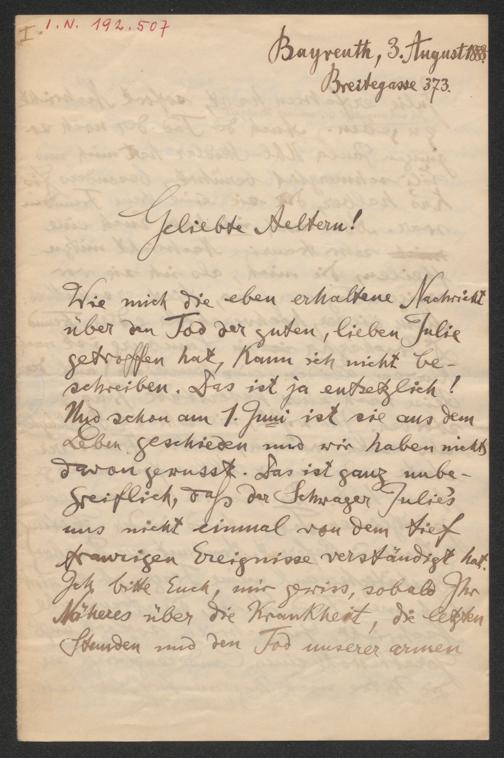 I. I.N. 192.507
Bayreuth, 3. August 1888.
Breitegasse 373.
Geliebte Aeltern!
Wie mich die eben erhaltene Nachricht
über den Tod der guten, lieben Julie
getroffen hat, kann ich nicht be-
schreiben. Das ist ja entsetzlich!
Und schon am 1. Juni ist sie aus dem
Leben geschieden und wir haben nichts
davon gewusst. Das ist ganz unbe-
greiflich, daß der Schwager Julie's
uns nicht einmal von dem tief
traurigen Ereignisse verständigt hat.
Ich bitte Euch, mir gewiss, sobald Ihr
Näheres über die Krankheit, die letzten
Stunden und den Tod unserer armen